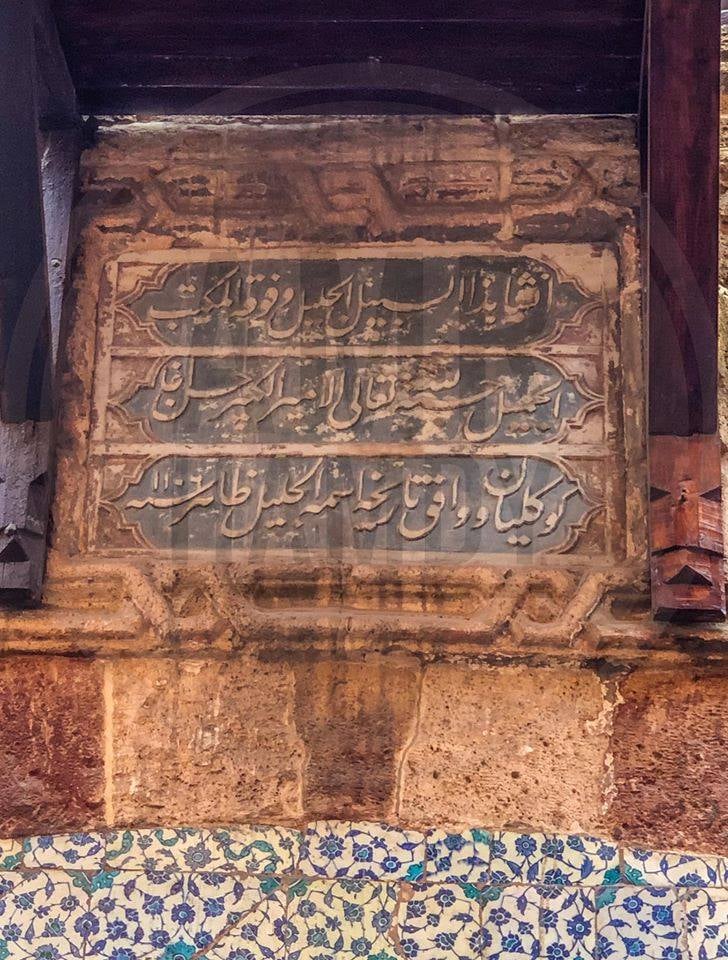 انشا هذا السبيل الجليل وفوقه المكتب
الجميل حسبة لله تعالى الامير الكبير حسن اغا
كوكليان ووافق تاريخه اسمه الجليل ظاهر سنه ١١٠٦
HAMDY